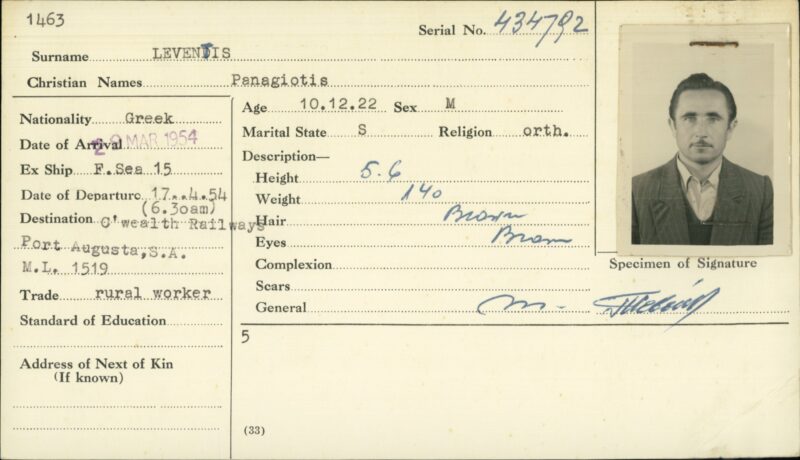 1463
Serial No. 434792
Surname LEVENTIS
Christian Names Panagiotis
Nationality Greek
Date of Arrival 29 MAR 1954
Ex Ship F.Sea 15
Date of Departure 17..4.54
(6.30am)
Destination C'wealth Railways
Port Augusta,S.A.
M.L. 1519
Trade rural worker
Standard of Education
Address of Next of Kin
(If known)
Age 10.12.22 Sex M
Marital State S Religion orth.
Description—
Height 5.6
Weight 140
Hair Brown
Eyes Brown
Complexion
Scars
General m.
Specimen of Signature
5
(33)